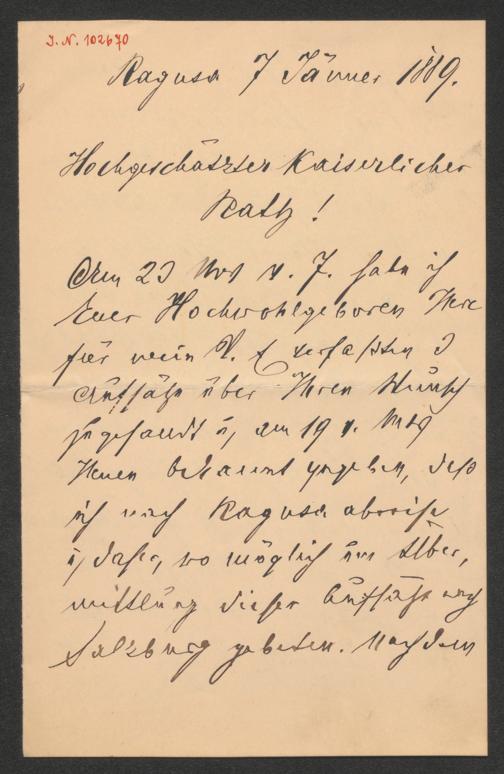 J. N. 102670
Ragusa 7 Jänner 1889.
Hochgeschätzter Kaiserlicher
Rath!
Am 23 Nov v. J. habe ich
Euer Hochwohlgeboren Ihre
für mein V. verfaßten 3
Aufsätze über Ihren Wunsch
zugesandt u, am 19 v. Mts
Ihnen bekannt gegeben, daß
ich nach Ragusa abreise
u, daher, wo möglich um Über,
mittlung dieser Aufsätze nach
Salzburg gebeten. Nachdem